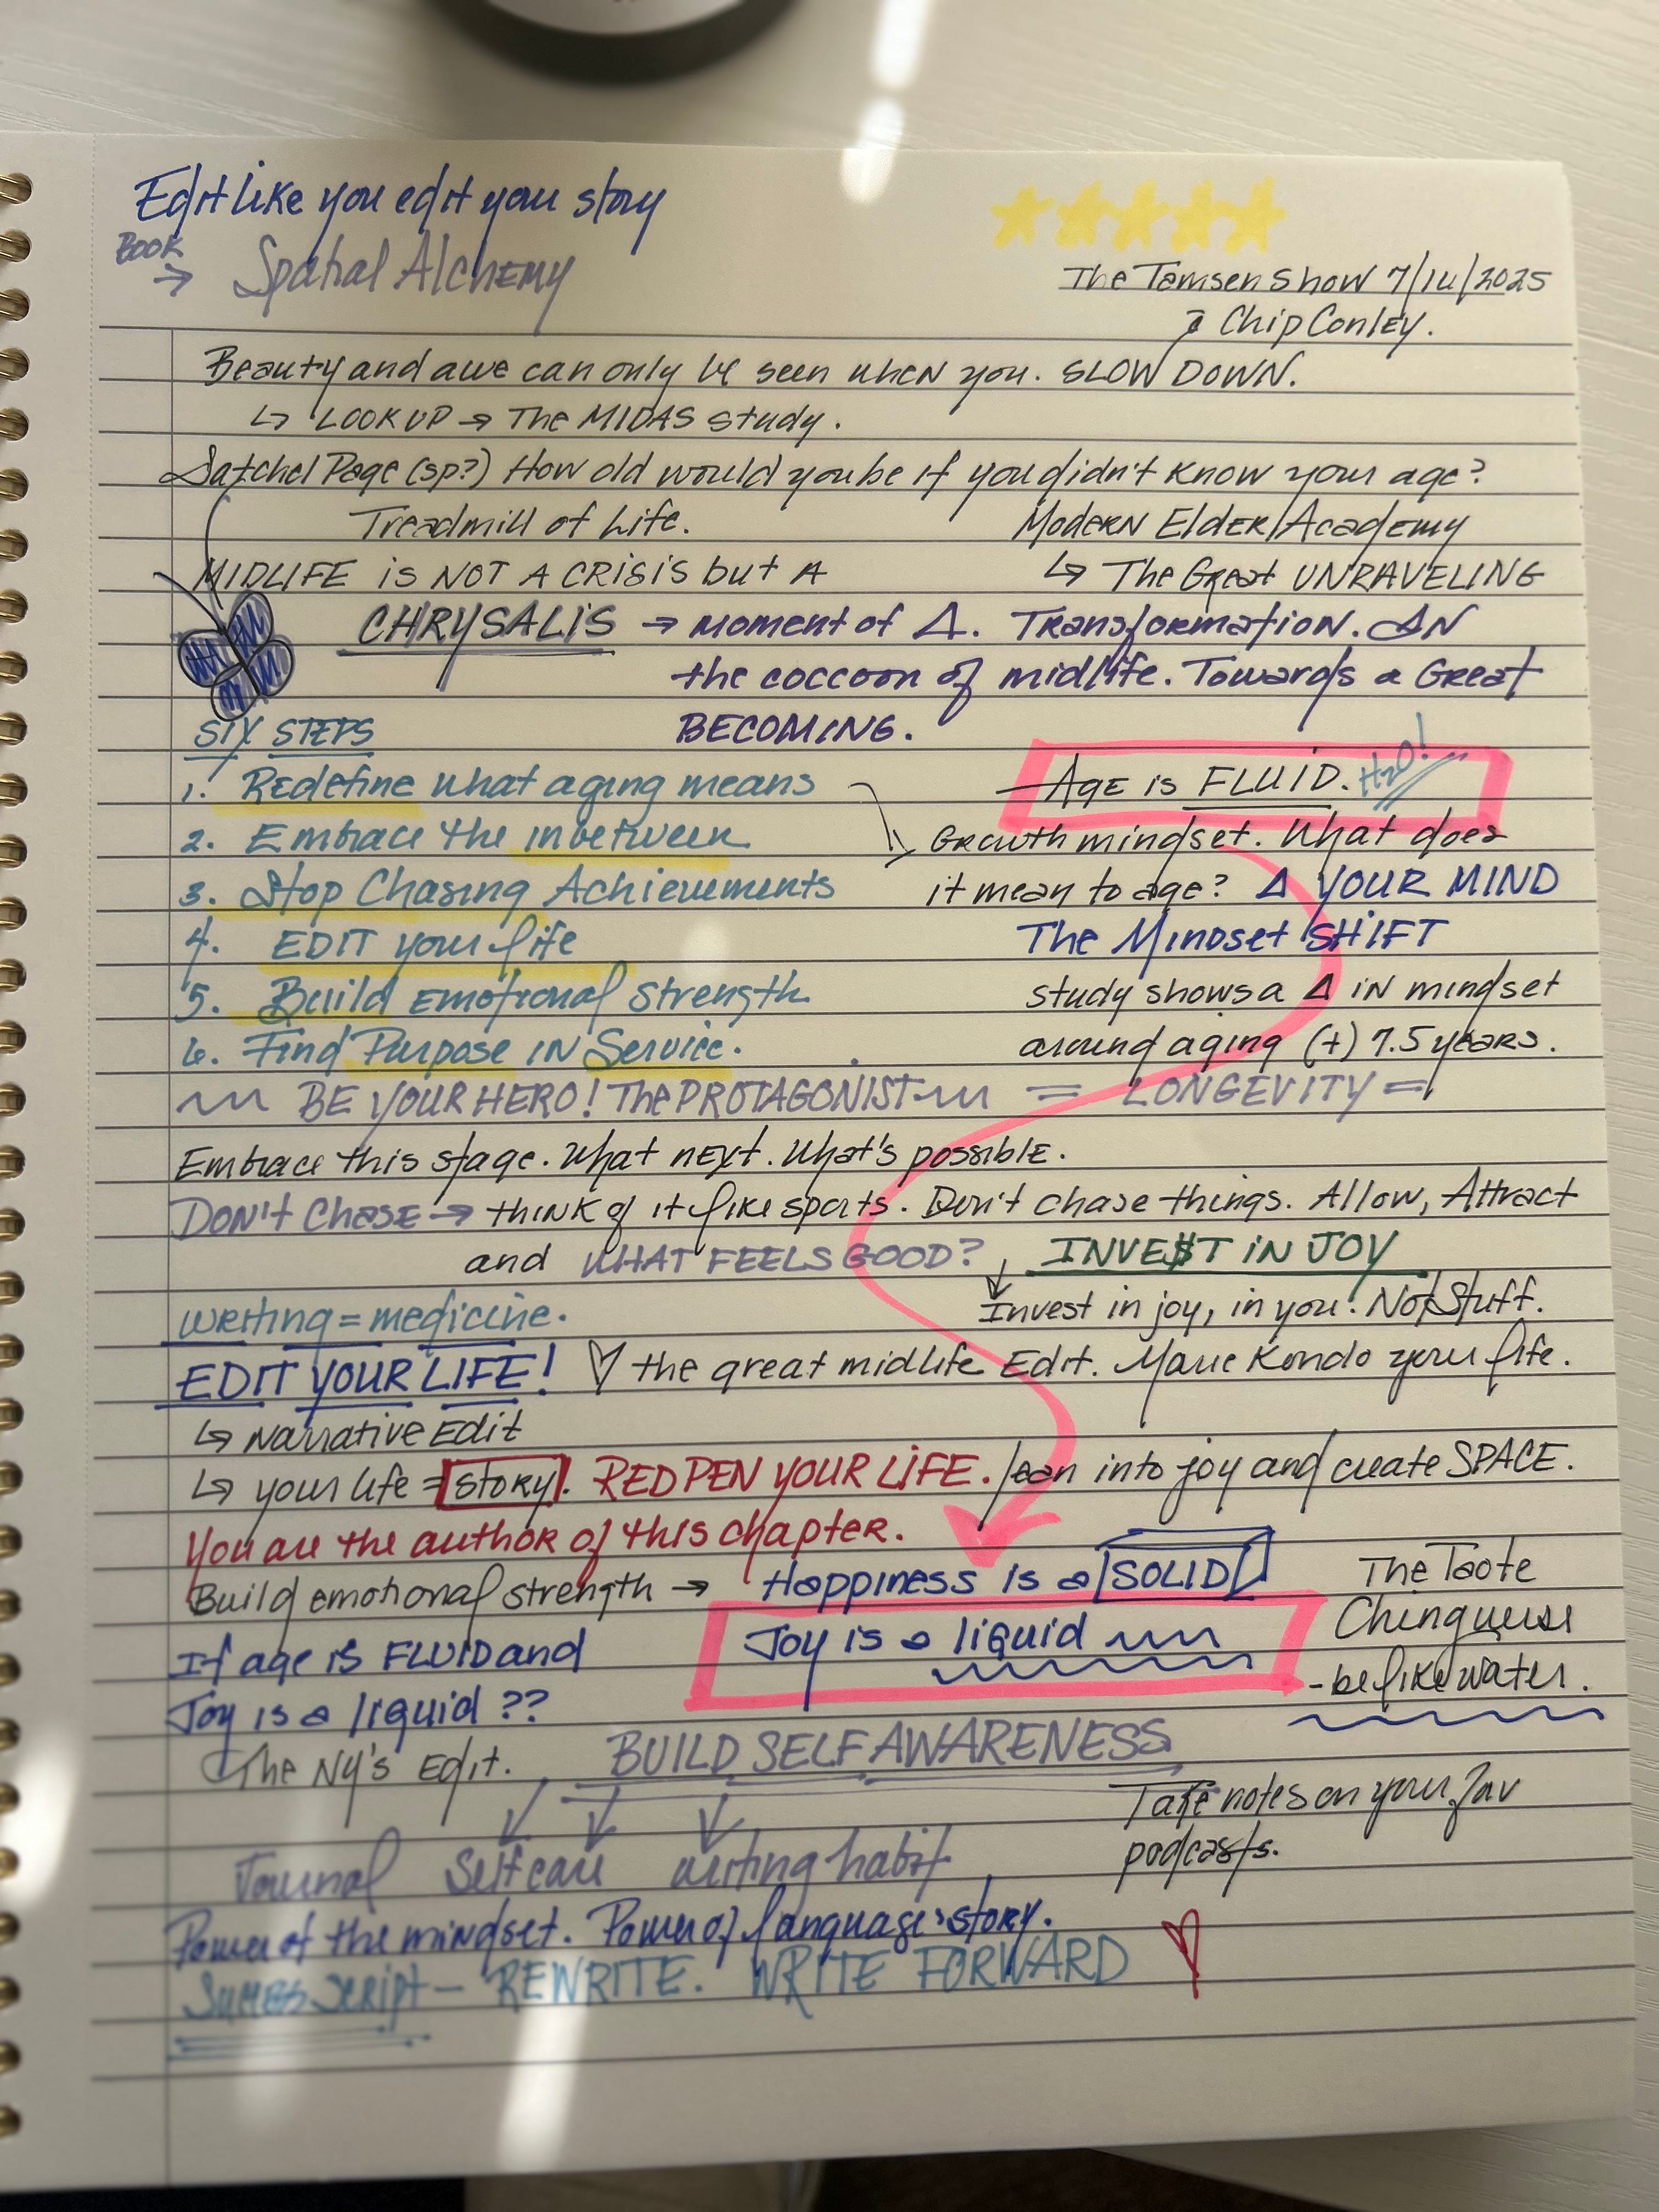 Edit like you edit your story
BOOK
→ Spatial Alchemy
The Tamsen Show 7/14/2025
Chip Conley.
Beauty and awe can only be seen when you. SLOW DOWN.
↳ LOOK UP → The MIDAS study.
Satchel Page (sp?) How old would you be if you didn't know your age?
Treadmill of Life.
Modern Elder Academy
MIDLIFE is NOT A CRISIS but A
↳ The Great UNRAVELING
CHRYSALIS → moment of Δ. TRANSformation. IN
the coccoon of midlife. Towards a Great
BECOMING.
SIX STEPS
1. Redefine what aging means
2. Embrace the inbetween
3. Stop Chasing Achievements
4. EDIT your life
5. Build Emotional Strength
6. Find Purpose IN Service.
Age is FLUID. H2O!
Growth mindset. What does
it mean to age? Δ YOUR MIND
The Mindset SHIFT
study shows a Δ in mindset
around aging (+) 7.5 years.
= LONGEVITY =
BE YOUR HERO! The PROTAGONIST
Embrace this stage. What next. What's possible.
DON'T CHASE → think of it like sports. Don't chase things. Allow, Attract
and WHAT FEELS GOOD?
INVE$T IN JOY
Invest in joy, in you. Not Stuff.
Writing = medicine.
EDIT YOUR LIFE! ♡ the great midlife Edit. Marie Kondo your life.
↳ Narrative Edit
↳ your life = story. RED PEN YOUR LIFE. lean into joy and create SPACE.
You are the author of this chapter.
Build emotional strength → Happiness is a SOLID
Joy is a liquid
The Taote
Ching verse
- be like water.
If age is FLUID and
Joy is a liquid ??
The NY's Edit.
BUILD SELF AWARENESS
Journal Selfcare writing habit
Take notes on your fav
podcasts.
Power of the mindset. Power of language: story.
Success script - REWRITE. WRITE FORWARD ♡